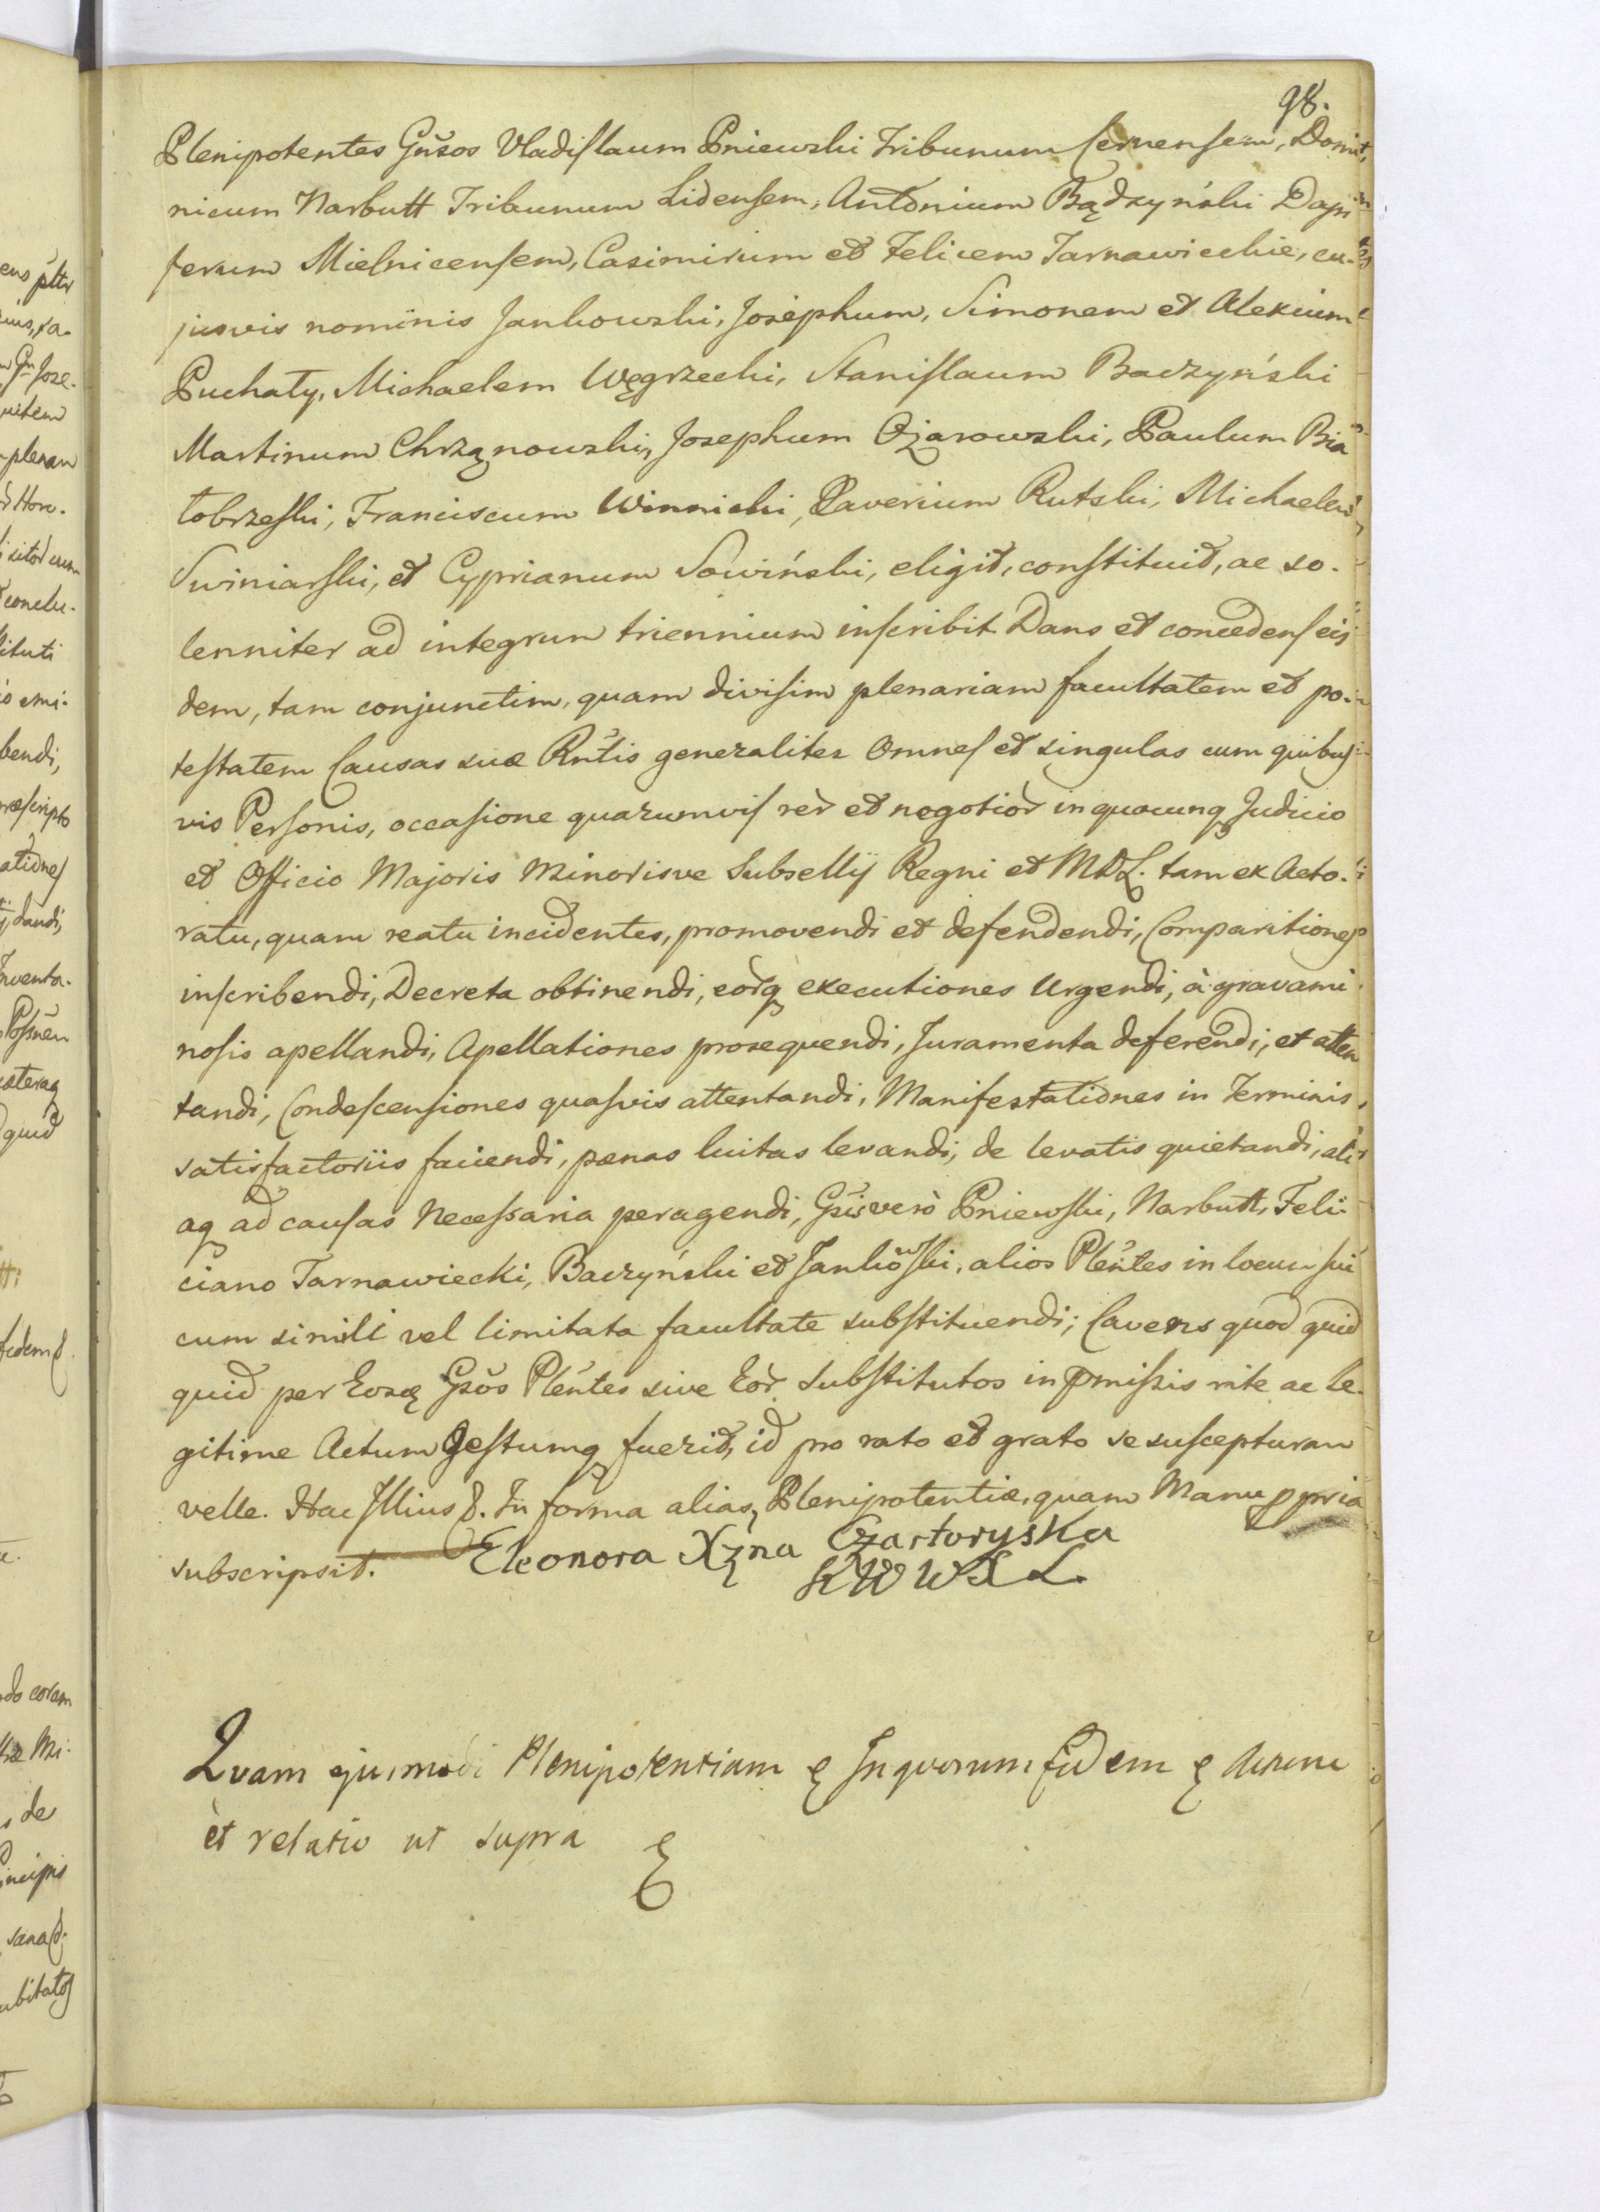 98.
Plenipotentes Gñsos Vladislaum Pniewski Tribunum Cernensem, Domi-
nicum Narbutt Tribunum Lidensem, Antonium Bądzyński Dapi-
ferum Mielnicensem, Casimirum et Felicem Tarnawieckie, cu-
jusvis nominis Jankowski, Josephum, Simonem et Alexium
Puchały, Michaelem Węgrzecki, Stanislaum Baczyński
Martinum Chrząnowski, Josephum Ożarowski, Paulum Bia
łobrzeski, Franciscum Winnicki, Xaverium Rutski, Michaelem
Swiniarski, et Cyprianum Sowiński, eligit, constituit, ac so-
lenniter ad integrum triennium inscribit. Dans et concedens eis
dem, tam conjunctim, quam divisim plenariam facultatem et po-
testatem Causas suæ Rñtis generaliter Omnes et singulas cum quibus
vis Personis, occasione quarumvis rer̀ et negotior̀ in quocunq Judicio
et Officio Majoris Minorisve Subsellij Regni et MDL. tam ex Acto-
ratu, quam reatu incidentes, promovendi et defendendi, Comparitiones
inscribendi, Decreta obtinendi, eorq executiones Urgendi, à gravami
nosis apellandi, Apellationes prosequendi, Juramenta deferendi, et atten
tandi, Condescensiones quasvis attentandi, Manifestationes in Terminis
satisfactoriis faciendi, pænas luitas levandi, de levatis quietandi, ali
aq ad causas Necessaria peragendi, Gsis verò Pniewski, Narbutt, Feli-
ciano Tarnawiecki, Baczyński et Jankowski, alios Pleñtes in locum sui
cum simili vel limitata facultate substituendi; Cavens quod quid
quid per Eosq Gsos Pleñtes sive Eor̀ Substitutos in pmissis rite ac le-
gitime Actum Gestumq fuerit, id pro rato et grato se suscepturam
velle. Hac Illius &. In forma alias, Plenipotentiæ, quam Manu ppria
subscripsit. Eleonora Xżna Czartoryska
KWWXL
Quam ejusmodi Plenipotentiam & In quorum fidem & Actum
et relatio ut supra &